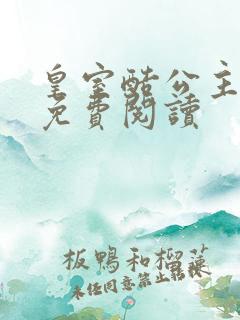 皇室酷公主
免費閱讀
板鴨和榴蓮
未经同意禁止转载